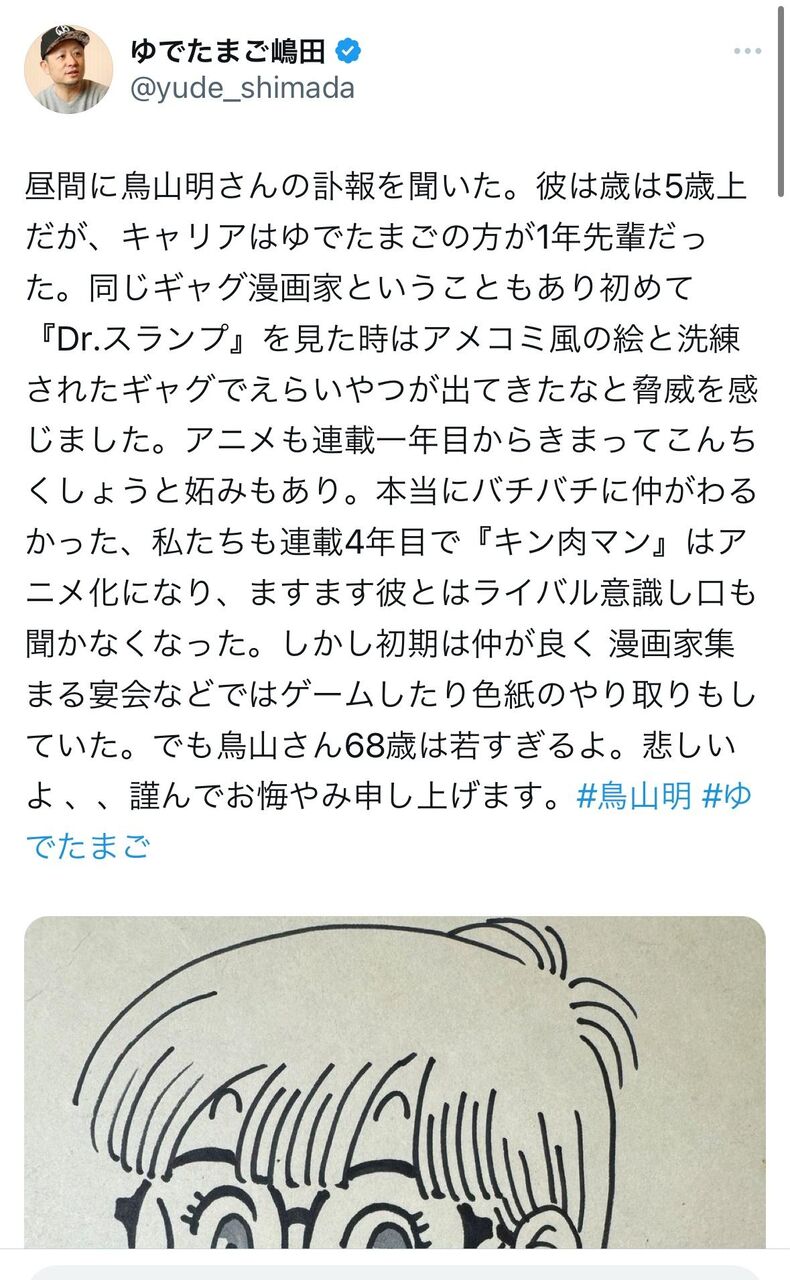 ゆでたまご嶋田
@yude_shimada
昼間に鳥山明さんの訃報を聞いた。彼は歳は5歳上
だが、キャリアはゆでたまごの方が1年先輩だっ
た。同じギャグ漫画家ということもあり初めて
『Dr.スランプ』を見た時はアメコミ風の絵と洗練
されたギャグでえらいやつが出てきたなと脅威を感
じました。アニメも連載一年目からきまってこんち
くしょうと妬みもあり。本当にバチバチに仲がわる
かった、私たちも連載4年目で『キン肉マン』はア
ニメ化になり、ますます彼とはライバル意識し口も
聞かなくなった。しかし初期は仲が良く 漫画家集
まる宴会などではゲームしたり色紙のやり取りもし
ていた。でも鳥山さん68歳は若すぎるよ。悲しい
よ 、、謹んでお悔やみ申し上げます。#鳥山明 #ゆ
でたまご